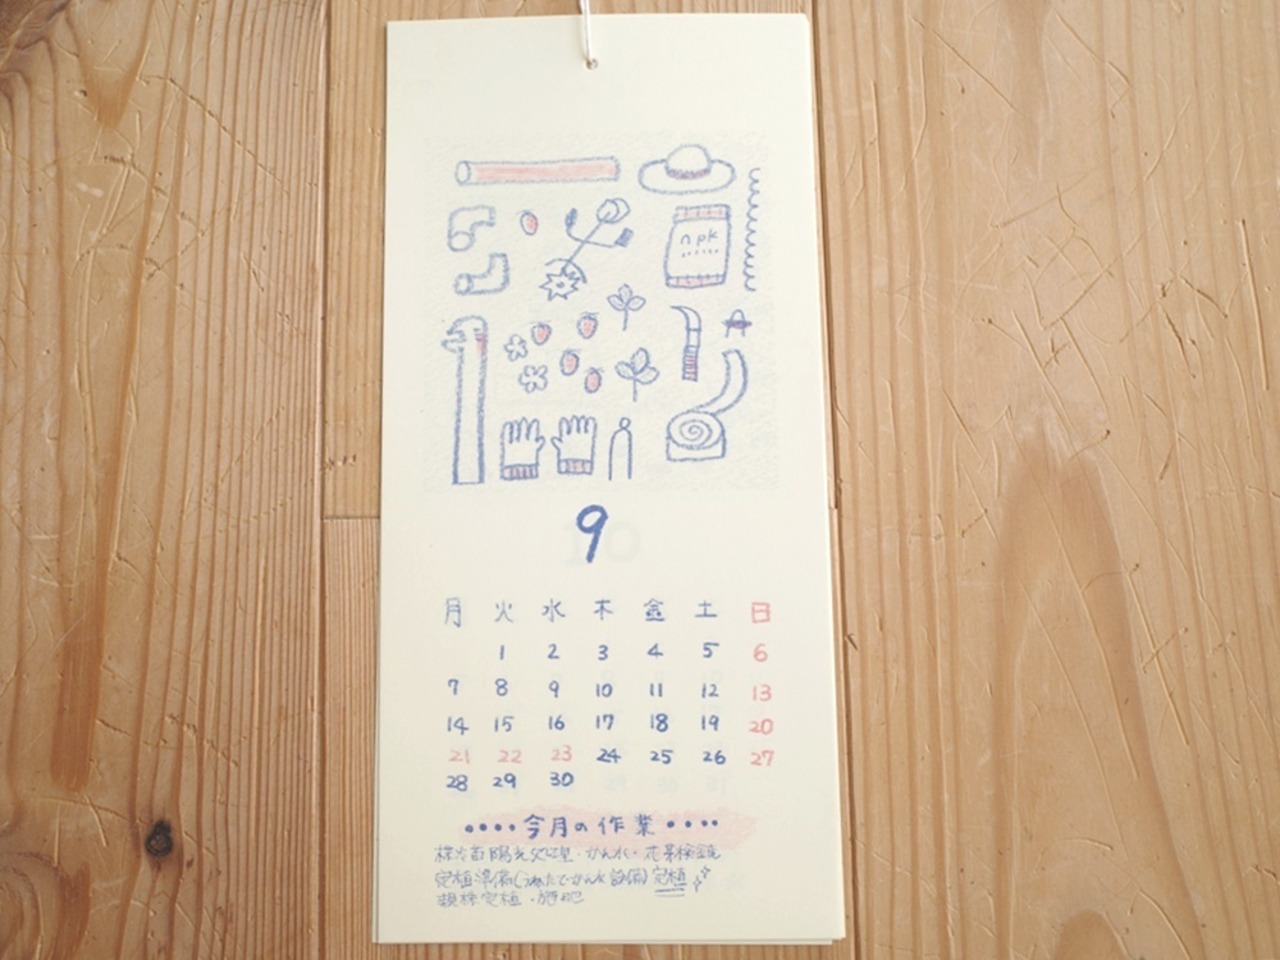 npk
9
月 火 水 木 金 土 日
1 2 3 4 5 6
7 8 9 10 11 12 13
14 15 16 17 18 19 20
21 22 23 24 25 26 27
28 29 30
今月の作業
陽光処理・かん水・花芽検鏡
定植準備(うねたて・かん水設備) 定植
親株定植・施肥